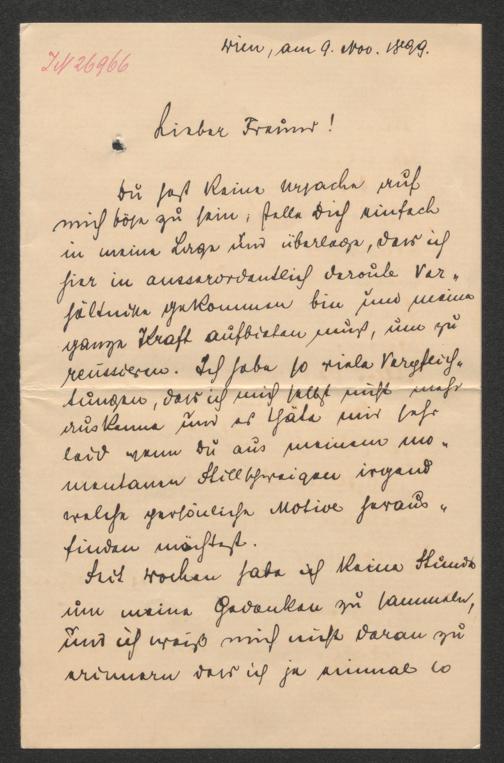 JN 26966
Wien, am 9. Nov. 1899.
Lieber Freund!
Du hast keine Ursache auf
mich böse zu sein; stelle Dich einfach
in meine Lage und überlege, dass ich
hier in ausserordentlich deroute Ver„
hältnisse gekommen bin und meine
ganze Kraft aufbieten muß, um zu
reussieren. Ich habe so viele Verpflich„
tungen, dass ich mich selbst nicht mehr
auskenne und es thäte mir sehr
leid wenn Du aus meinem mo„
mentanen Stillschweigen irgend
welche persönliche Motive heraus„
finden möchtest.
Seit Wochen habe ich keine Stunde
um meine Gedanken zu sammeln,
und ich weiß mich nicht daran zu
erinnern dass ich je einmal so